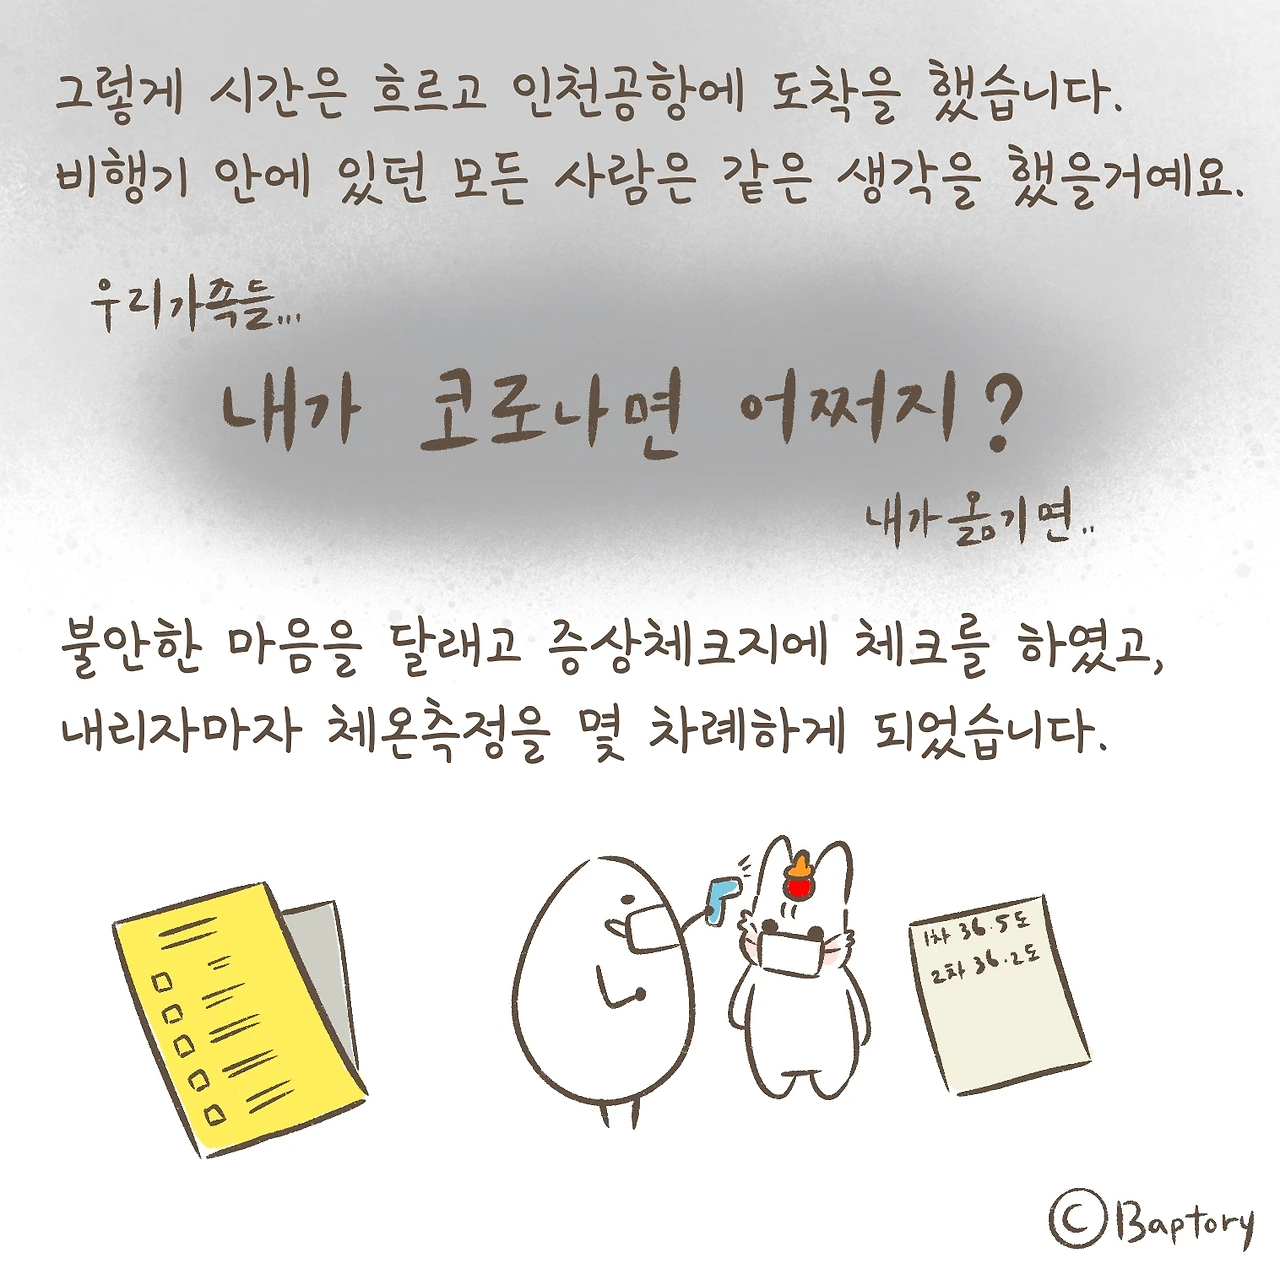 그렇게 시간은 흐르고 인천공항에 도착을 했습니다.
비행기 안에 있던 모든 사람은 같은 생각을 했을거예요.
우리가족들...
내가 코로나면 어쩌지?
내가옮기면..
불안한 마음을 달래고 증상체크지에 체크를 하였고,
내리자마자 체온측정을 몇 차례하게 되었습니다.
1차 36.5도
2차 36.2도
©Baptory